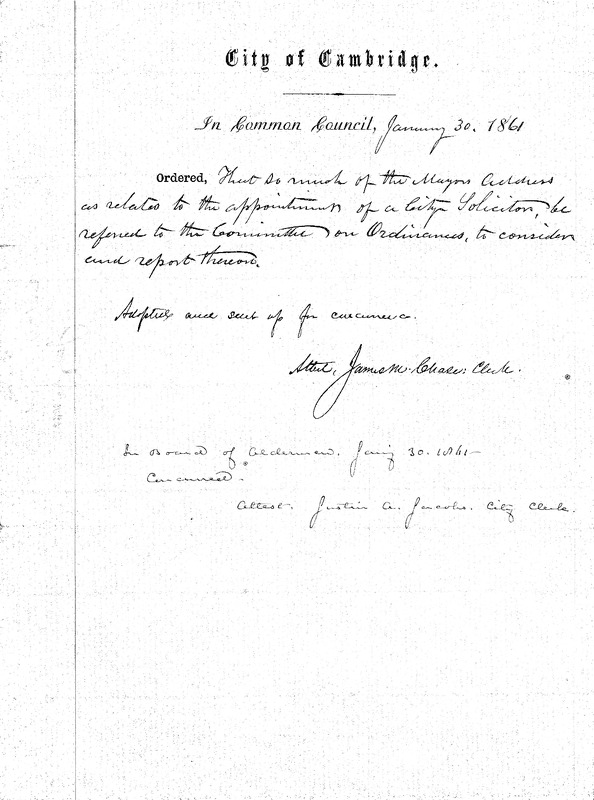 City of Cambridge.
In Common Council, January 30. 1861
Ordered, That so much of the Mayors Address
as relates to the appointment of a City Solicitor, be
referred to the Committee on Ordinances, to consider
and report thereon.
Adopted and sent up for concurrence.
Attest, James M. Chase, Clerk.
In Board of Aldermen. Jany 30. 1861
Concurred.
Attest. Justin A. Jacobs. City Clerk.